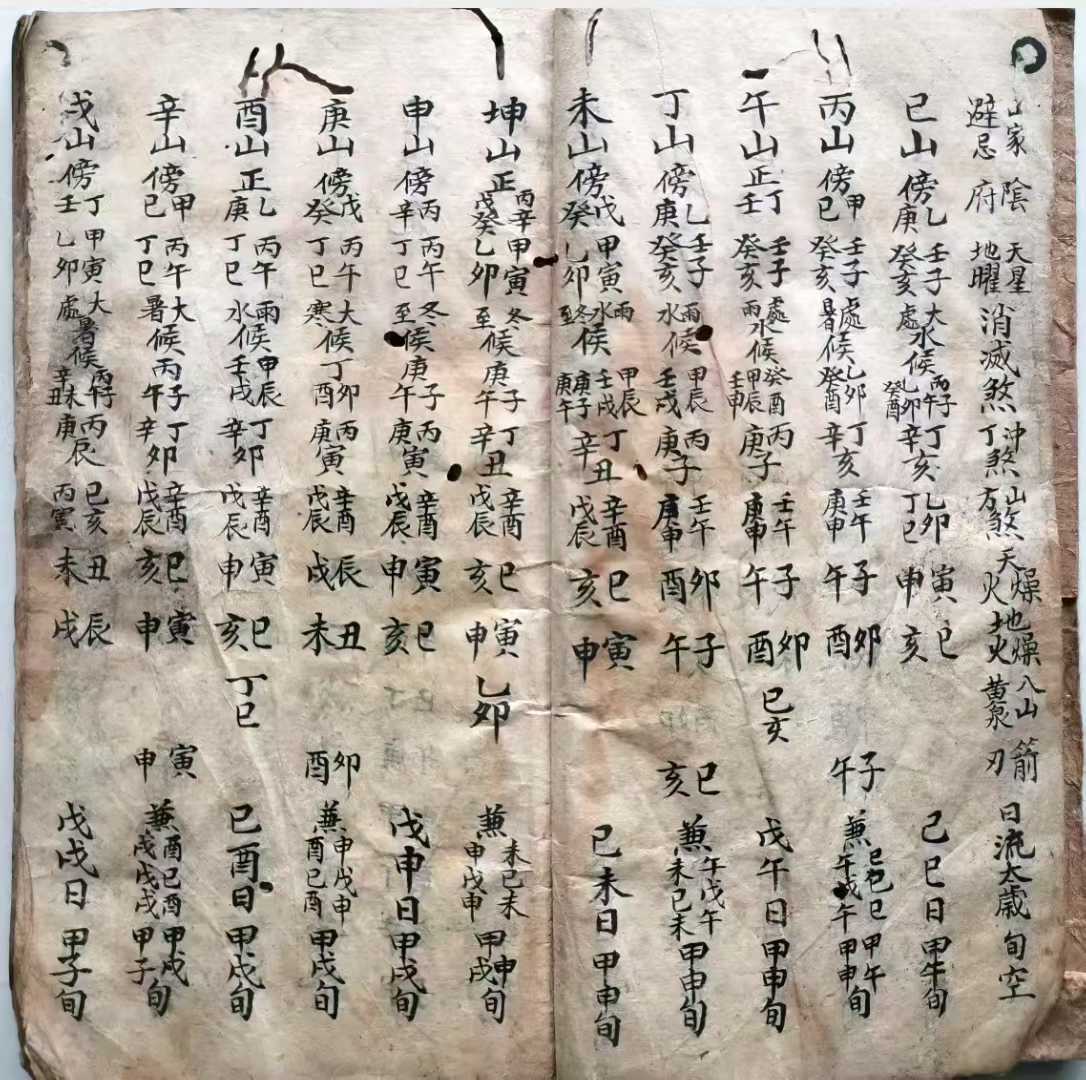 山家避忌 陰府 天星地曜 消滅煞 沖丁煞 山方煞 天燥火 地燥火 八山黄泉 箭刃 日流太歲 旬空
巳山 傍乙庚 壬子癸亥 大處水候 丙子丙午乙卯癸酉 丁亥辛亥 乙卯丁巳 寅申 巳亥 己巳日 甲午旬
丙山 傍甲己 壬子癸亥 處暑候 乙卯癸酉 丁亥辛亥 壬午庚申 子午 卯酉 子午 兼巳己巳午戊午 甲午甲申旬
午山 正丁壬 壬子癸亥 處雨水候 癸酉甲辰壬申 丙子庚子 壬午庚申 子午 卯酉 巳亥 戊午日 甲申旬
丁山 傍乙庚 壬子癸亥 雨水候 甲辰壬戌 丙子庚子 壬午庚申 卯酉 子午 巳亥 兼午戊午未己未 甲申旬
未山 傍戊癸 甲寅乙卯 雨水冬至候 甲辰壬戌庚子庚午 丁丑辛丑 辛酉戊辰 巳亥 寅申 己未日 甲申旬
坤山 正丙辛戊癸 甲寅乙卯 冬至候 庚子庚午 丁丑辛丑 辛酉戊辰 巳亥 寅申 乙卯 兼未己未申戊申 甲申甲戌旬
申山 傍丙辛 丙午丁巳 冬至候 庚子庚午 丙寅庚寅 辛酉戊辰 寅申 巳亥 戊申日 甲戌旬
庚山 傍戊癸 丙午丁巳 大寒候 丁卯丁酉 丙寅庚寅 辛酉戊辰 辰戌 丑未 卯酉 兼申戊申酉己酉 甲戌旬
酉山 正乙庚 丙午丁巳 雨水候 甲辰壬戌 丁卯辛卯 辛酉戊辰 寅申 巳亥 丁巳 己酉日 甲戌旬
辛山 傍甲己 丙午丁巳 大暑候 丙子丙午 丁卯辛卯 辛酉戊辰 巳亥 寅申 寅申 兼酉己酉戌戊戌 甲戌甲子旬
戌山 傍丁壬 甲寅乙卯 大處暑候 丙子丙午辛未辛丑 丙辰庚辰 己亥丙寅 丑未 辰戌 戊戌日 甲子旬